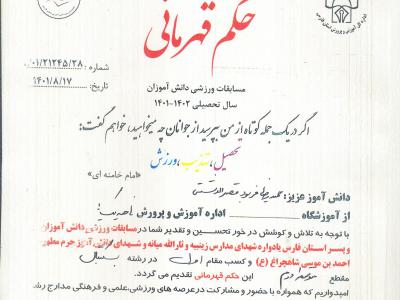 حکم قهرمانی
شماره : ۰۱/۲۱۲۴۵/۲۸/.
تاریخ: ۱۴۰۱/۸/۱۷
مسابقات ورزشی دانش آموزان
سال تحصیلی ۱۴۰۲-۱۴۰۱
اگر در یک جمله کوتاه از من بپرسید از جوانان چه میخواهید، خواهم گفت:
تحصیل، تهذیب، ورزش
«امام خامنه ای»
دانش آموز عزیز:
از آموزشگاه اداره آموزش و پرورش
با توجه به تلاش و کوشش در خور تحسین و تقدیر شما در مسابقات ورزشی دانش آموزان
پسر استان فارس یادواره شهدای مدارس زینبیه و ثارالله میانه و شهدای دانش آموز حرم مطهر
احمد بن موسی شاهچراغ (ع) و کسب مقام اول در رشته
مقطع این حکم قهرمانی تقدیم می گردد.
امیدواریم که همواره با حضور و مشارکت در عرصه های ورزشی، علمی و فرهنگی مدارج رشد